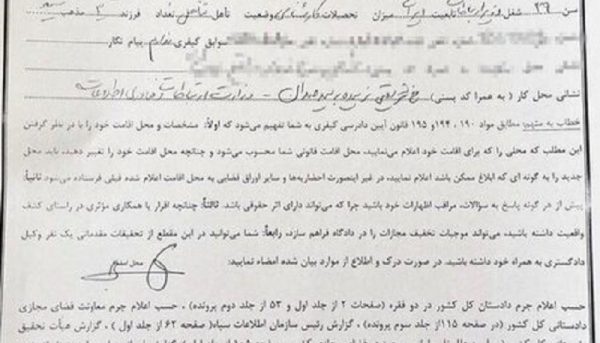 سن ۳۹ شغل وزیر ارتباطات تابعیت ایران میزان تحصیلات کارشناسی وضعیت تأهل متأهل تعداد فرزند ۳ مذهب شیعه
سوابق کیفری ندارم پیام نگار
نشانی محل کار ( به همراه کد پستی ) خ شریعتی نرسیده به پل سیدخندان - وزارت ارتباطات و فناوری اطلاعات
خطاب به متهم: مطابق مواد ۱۹۰، ۱۹۴ و ۱۹۵ قانون آیین دادرسی کیفری به شما تفهیم می‌شود که اولاً: مشخصات و محل اقامت خود را با در نظر گرفتن
این مطلب که محلی را که برای اقامت خود اعلام می‌نمایید، محل اقامت قانونی شما محسوب می‌شود و چنانچه محل اقامت خود را تغییر دهید، باید محل
جدید را به گونه ای که ابلاغ ممکن باشد اعلام نمایید، در غیر اینصورت احضاریه‌ها و سایر اوراق قضایی به محل اقامت اعلام شده قبلی فرستاده می‌شود ثانیاً:
پیش از هر گونه پاسخ به سؤالات، مراقب اظهارات خود باشید چرا که می‌تواند دارای اثر حقوقی باشد. ثالثاً: چنانچه اقرار یا همکاری مؤثری در راستای کشف
واقعیت داشته باشید، می‌تواند موجبات تخفیف مجازات را در دادگاه فراهم سازد، رابعاً: شما می‌توانید در این مقطع از تحقیقات مقدماتی یک نفر وکیل
دادگستری به همراه خود داشته باشید. در صورت درک و اطلاع از موارد بیان شده امضاء نمایید:
محل امضاء
حسب اعلام جرم دادستان کل کشور در دو فقره (صفحات ۲ از جلد اول و ۵۳ از جلد دوم پرونده) ، حسب اعلام جرم معاونت فضای مجازی
دادستانی کل کشور (در صفحه ۱۱۵ از جلد سوم پرونده) ، گزارش رئیس سازمان اطلاعات سپاه( صفحه ۶۲ از جلد اول ) ، گزارش هیأت تحقیق